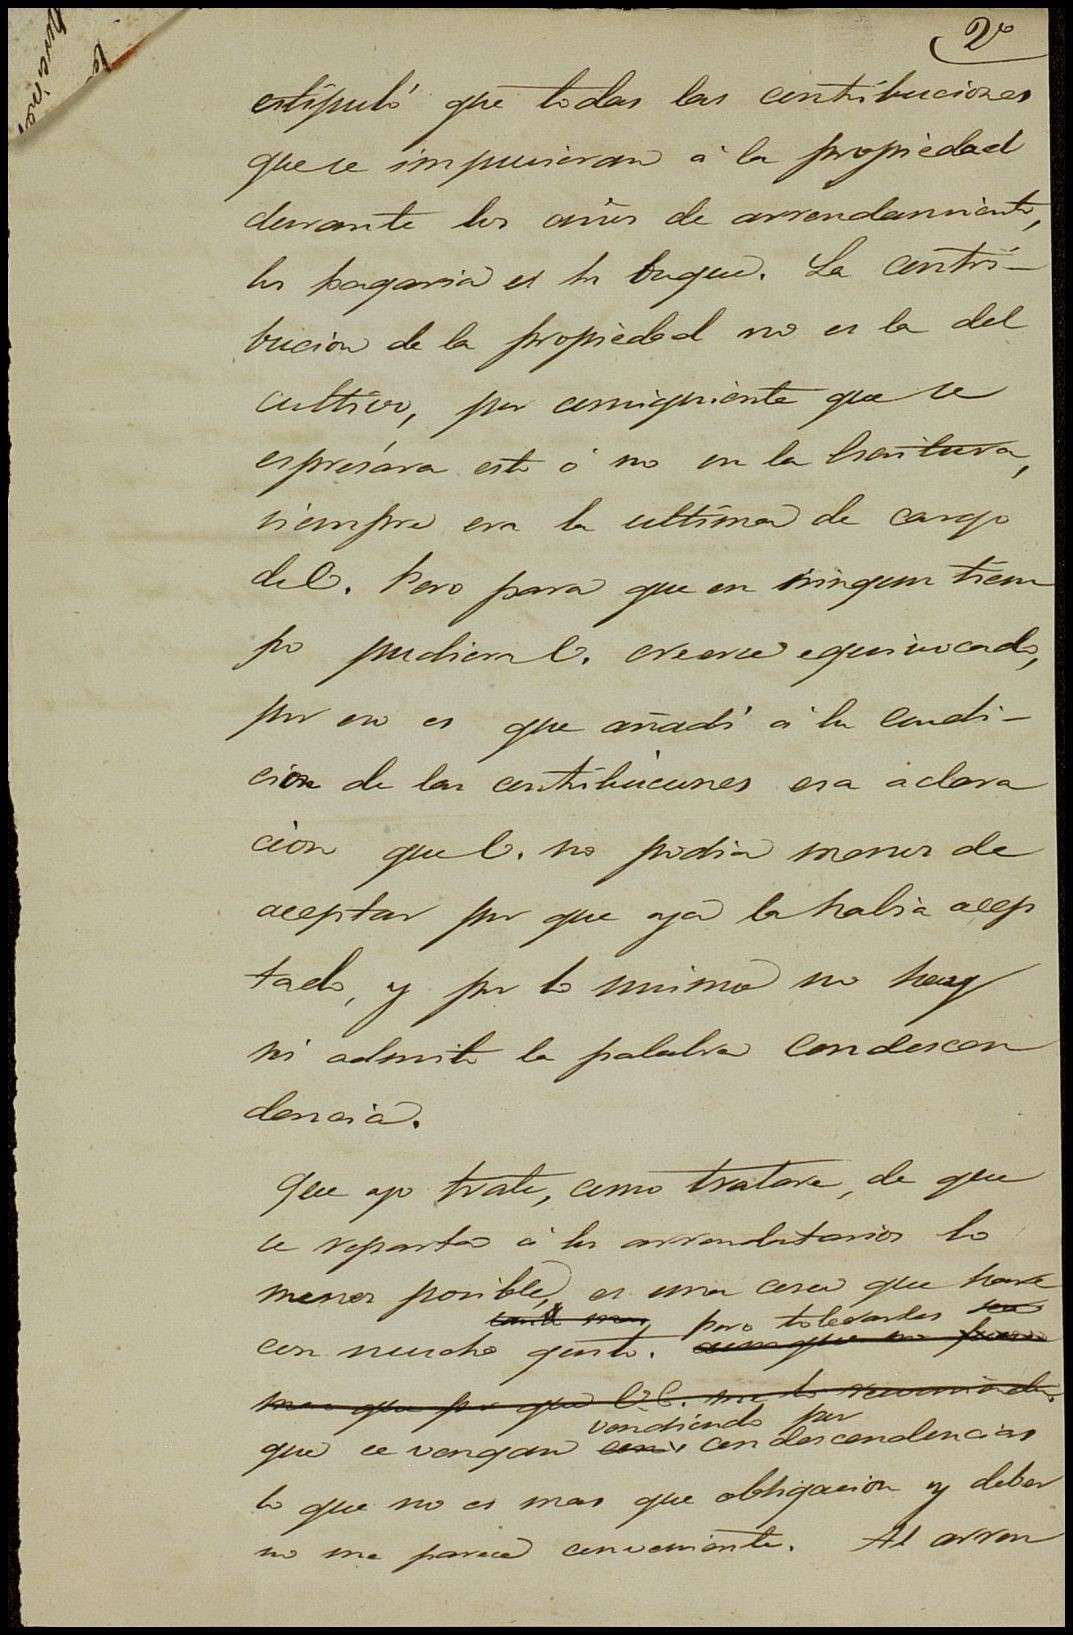 2º
estipuló que todas las contribuciones
que se impusieran á la propiedad
durante los años de arrendamiento,
las pagaria el
La contri-
bucion de la propiedad no es la del
cultivo, por consiguiente que se
espresára esto ó no en la escritura,
siempre era la ultima de cargo
de V. Pero para que en ningun tiem
po pudiera V. creerse equivocado,
por eso es que añadí á la condi-
cion de las contribuciones esa aclara
cion que V. no podia menos de
aceptar por que ya la habia acep
tado, y por lo mismo no hay
ni admito la palabra condescen
dencia.
Que yo trate, como tratare, de que
se reparta á los arrendatarios lo
menos posible, es una cosa que hare
pero tolerarles
con mucho gusto. aunque no fuera
mas que por que VV. me lo recomiendan
vendiendo por
que se vengan con condescendencias
lo que no es mas que obligacion y deber
no me parece conveniente. Al arren